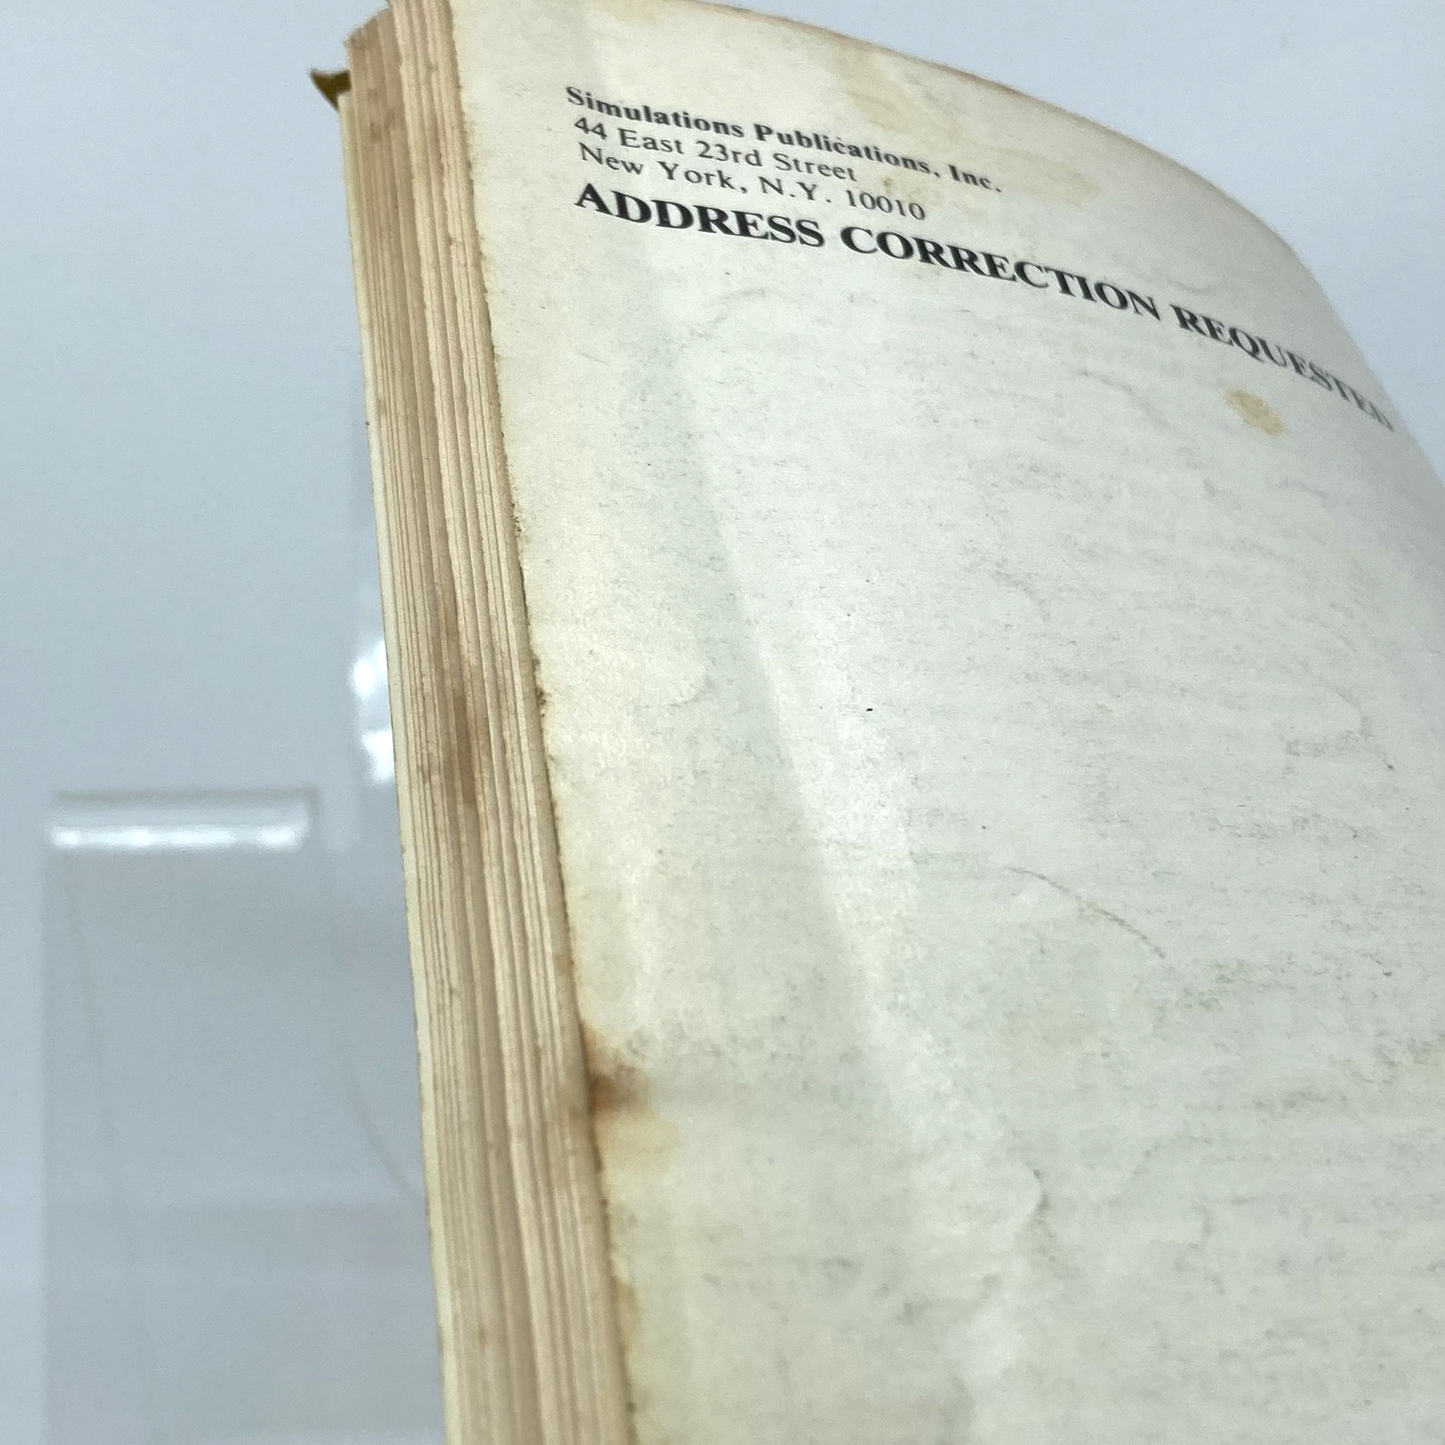 Simulations Publications, Inc.
44 East 23rd Street
New York, N.Y. 10010
ADDRESS CORRECTION REQUESTED